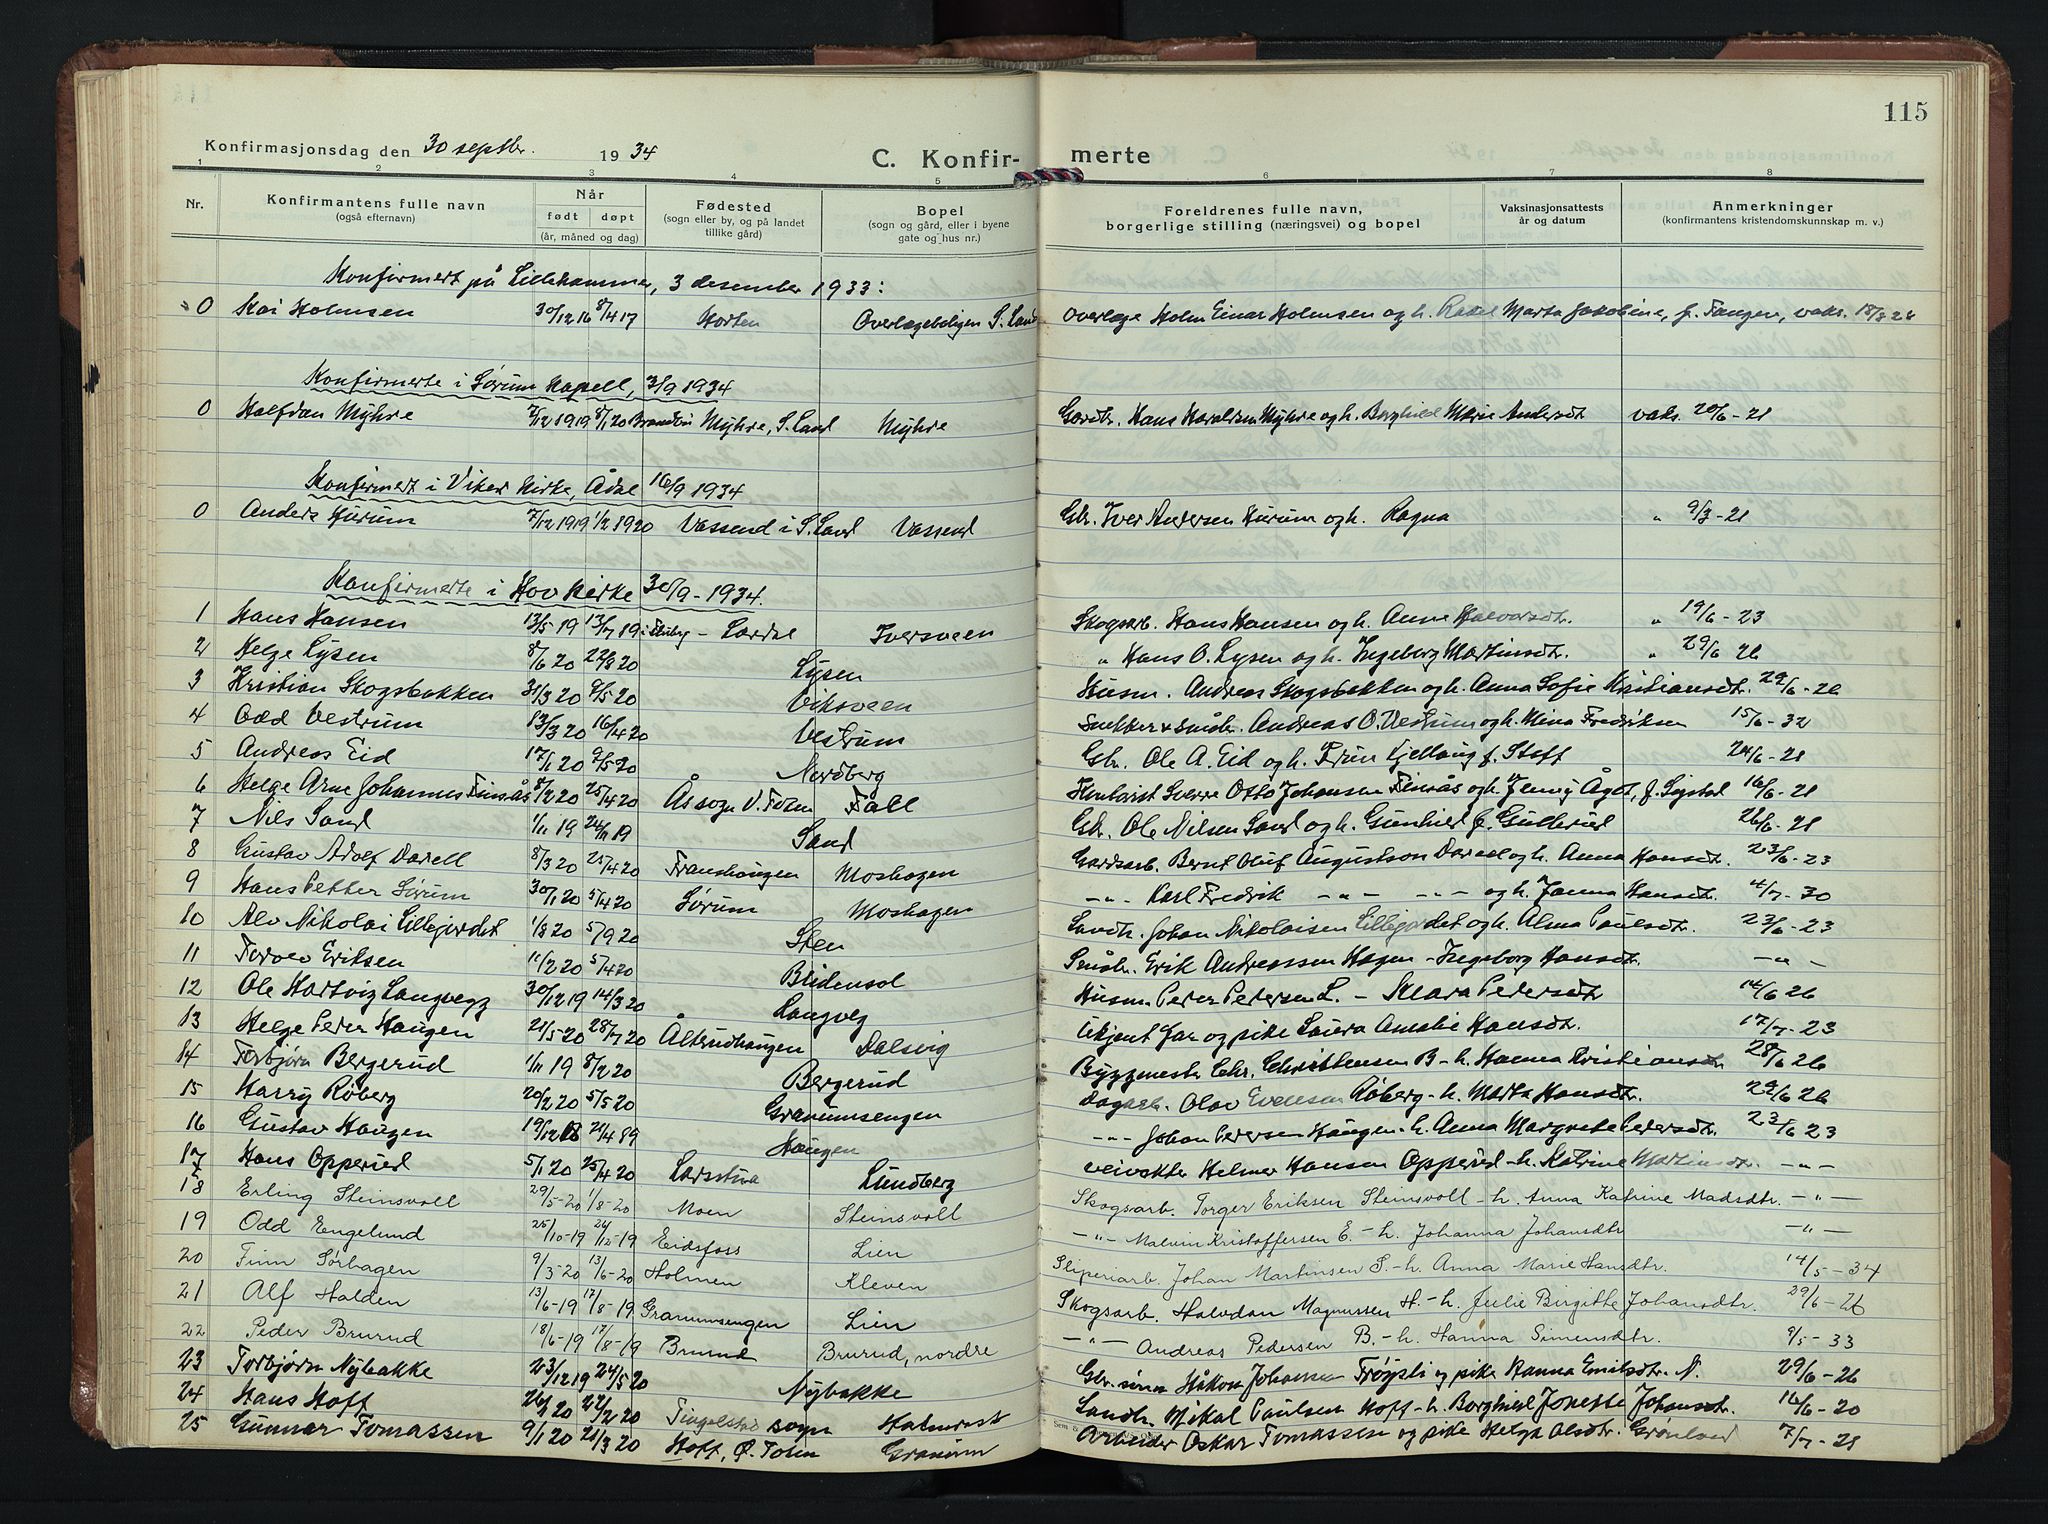 115
Konfirmasjonsdag den 30 septbr. 1934
C. Konfir- merte
1 2 3 4 5 6 7 8
Nr. Konfirmantens fulle navn (også efternavn) Når født døpt (år, måned og dag) Fødested (sogn eller by, og på landet tillike gård) Bopel (sogn og gård, eller i byene gate og hus nr.) Foreldrenes fulle navn, borgerlige stilling (næringsvei) og bopel Vaksinasjonsattests år og datum Anmerkninger (konfirmantens kristendomskunnskap m. v.)
Konfirmert på Lillehammer, 3 desember 1933:
0 Kai Holmsen 30/12 16 8/4 17 Horten Overlægeboligen S. Land Overlæge Holm Einar Holmsen og h. Marta Jakobine, f. Fangen, vaks.
Konfirmerte i Sørum Kapell, 1934
0 Halfdan Myhre 1919 8/1 20 Myhre, S. Land Myhre Gardbr. Hans Haraldsen Myhre og h. Borghild Marie Andersdt vaks. 20/6 - 21
Konfirmert i Viker kirke, Ådal 16/9 1934
0 Anders Hurum 7/12 1919 1/2 1920 Vassend i S. Land Vassend Gbr. Iver Andersen Hurum og h. Ragna " 9/3 - 21
Konfirmerte i Hov kirke 30/9 - 1934.
1 Hans Hansen 13/5 19 13/7 19 - Lærdal Iversveen Skogsarb. Hans Hansen og h. Anne Halvorsdt. " 19/6 - 23
2 Helge Lysen 8/6 20 22/8 20 Lysen " Hans O. Lysen og h. Ingeborg Martinsdt. " 29/6 26
3 Kristian Skogsbakken 31/3 20 9/5 20 Viksveen Husm. Andreas Skogsbakken og h. Anna Sofie Kristiansdt. 29/6 - 26
4 Odd Vestrum 13/3 20 16/4 20 Vestrum Snekker & småbr. Andreas O. Vestrum og h. Mina Fredriksen 15/6 - 32
5 Andreas Eid 17/1 20 9/5 20 Nordberg Gbr. Ole A. Eid og h. Kjellaug f. Stoff 24/6 - 21
6 Helge Arne Johannes Finsås 8/2 20 25/4 20 Ås sogn V. Toten Fall Sverre Otto Johansen Finsås og h. Jenny Ågot, f. Sigstad 16/6 - 21
7 Nils Sand 1/11 19 24/11 19 Sand Gbr. Ole Nilsen Sand og h. Gunhild f. Gullerud 26/6 - 21
8 Gustav Adolf Darell 8/3 20 25/4 20 Franshaugen Moshagen Gardsarb. Bernt Oluf Augustson Darell og h. Anna Hansdt. 23/6 - 23
9 Hans Petter Sørum 30/1 20 5/4 20 Sørum Moshagen - " - Karl Fredrik - " - - " - og h. Janna Hansdt. 4/7 - 30
10 Alv Nikolai Lillejordet 1/8 20 5/9 20 Sten Landbr. Johan Nikolaisen Lillejordet og h. Alma Paulsdt. 23/6 - 23
11 Torlev Eriksen 11/2 20 5/4 20 Blidensol Småbr. Erik Andreassen Hagen - Ingeborg Hansdt. - " -
12 Ole Hartvig Langvegg 30/12 19 14/3 20 Langveg Husm. Peder Pedersen L. - Klara Pedersdt 14/6 26
13 Helge Peder Haugen 21/5 20 28/7 20 Ålterudhaugen Dalsvig Ukjent far og pike Laura Amalie Hansdt. 17/7 - 23
14 Torbjørn Bergerud 1/11 19 8/2 20 Bergerud Byggmester Chr. Christensen B - h. Hanna Kristiansen 28/6 26
15 Harry Røberg 20/2 20 5/5 20 Granumsengen Dagarb. Olav Evensen Røberg - h. Marta Hansdt. 29/6 26
16 Gustav Haugen 19/12 18 21/4 89 Haugen - " - Johan Pedersen Haugen - h. Anna Margrete Pedersdt. 23/6 23
17 Hans Opperud 5/1 20 25/4 20 Larsstua Lundberg Veivokter Helmer Hansen Opperud - h. Katrine Martinsdt. - " -
18 Erling Steinsvoll 29/5 - 20 1/8 - 20 Moen Steinsvoll Skogsarb. Torger Eriksen Steinsvoll - h. Anna Katrine Madsdtr. - " -
19 Odd Engelund 25/10 - 19 26/12 - 19 Eidsfoss Lien - " - Malvin Kristoffersen E. - h. Johanna Johansdtr - " -
20 Finn Sørhagen 9/3 - 20 13/6 - 20 Holmen Kleven Sliperiarb. Johan Martinsen S. - h. Anna Marie Hansdtr. 14/5 - 34
21 Alf Halden 13/6 - 19 17/8 - 19 Granumsengen Lien Skogsarb. Halvdan Magnussen H. - h. Julie Birgitte Johansdtr. 29/6 - 26
22 Peder Brurud 18/6 - 19 17/8 - 19 Brurud Brurud, nordre - " - Andreas Pedersen B. - h. Hanna Simensdtr. 9/5 - 33
23 Torbjørn Nybakke 23/12 19 24/5 20 Nybakke Gbr. sønn Håkon Johansen Trøgsli og pike Hanna Emilsdtr. N. 29/6 - 26
24 Hans Hoff 26/1 20 22/2 20 Tingelstad sogn Halmrast Landbr. Mikal Paulsen Hoff - h. Borghild Jonette Johansdtr. 16/6 - 20
25 Gunnar Tomassen 9/1 20 21/3 20 Hoff, Ø. Toten Granum Arbeider Oskar Tomassen og pike Helga Olsdtr. Grønland 7/7 - 21